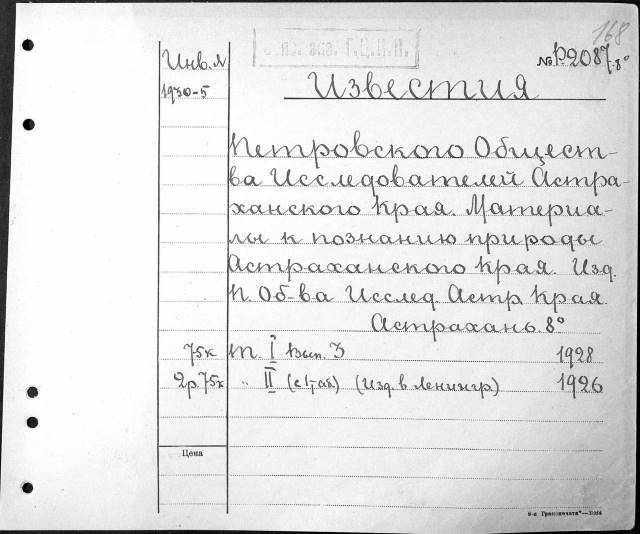 168
Инв. №
№ P.2087.8°
Известия
1930-5
Петровского Общест-
ва Исследователей Астра-
ханского Края. Материа-
лы к познанию природы
Астраханского Края. Изд.
П. Об-ва Исслед. Астр. Края.
Астрахань. 8°
75к Т. I Вып. 3 1928
2р.75к " II (Изд. в Ленингр) 1926
Цена